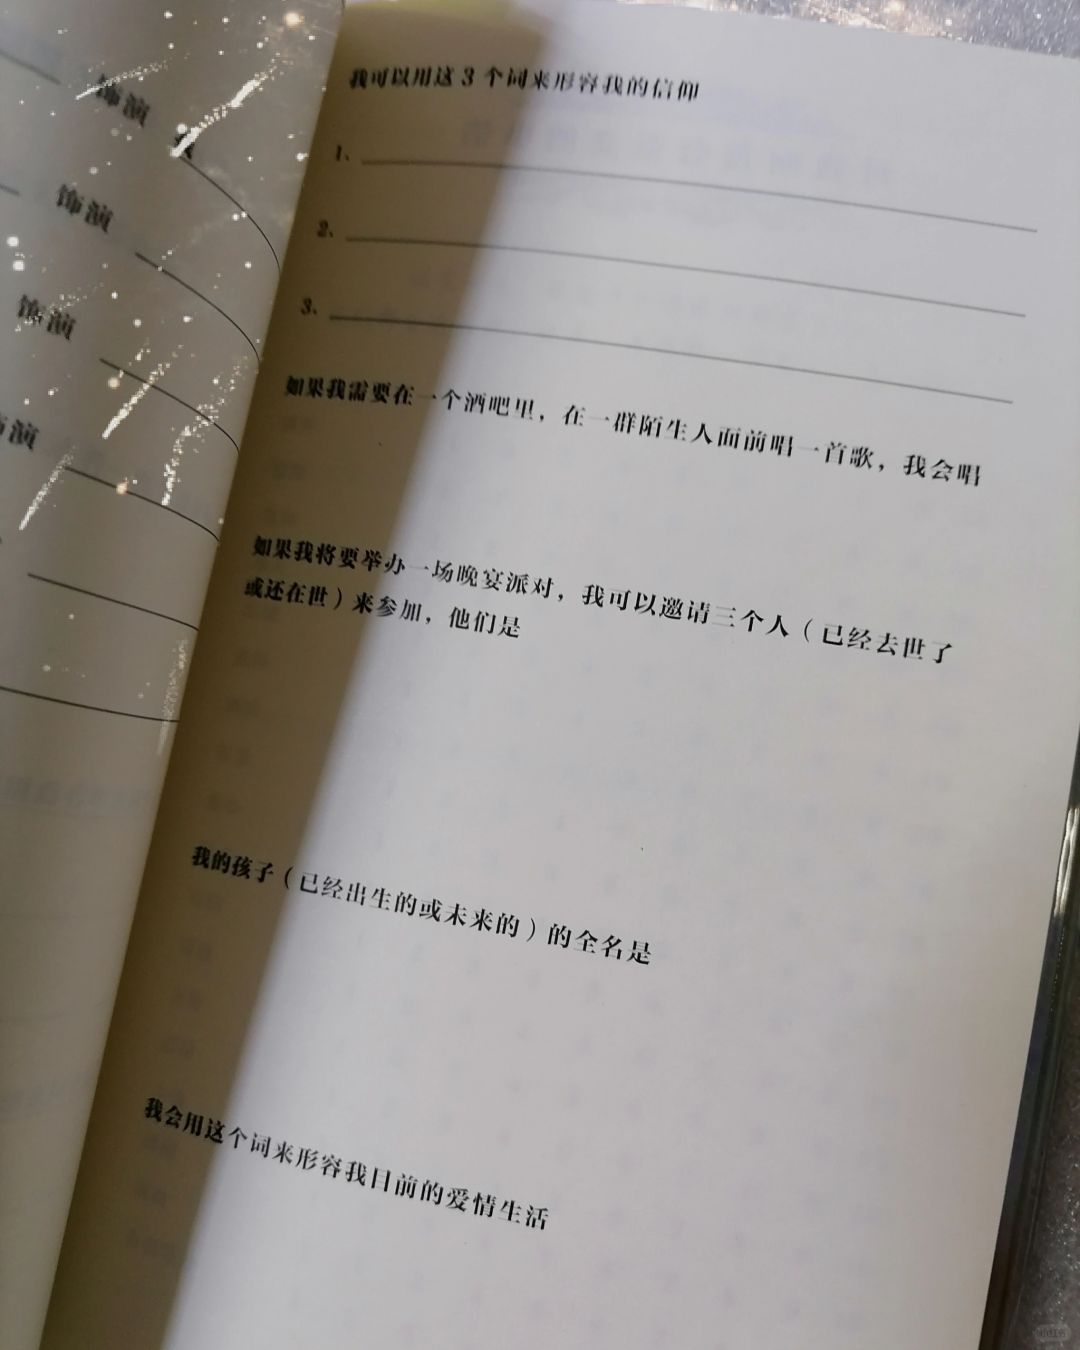 饰演
我
饰演
饰演
饰演
我可以用这 3 个词来形容我的信仰
1、
2、
3、
如果我需要在一个酒吧里，在一群陌生人面前唱一首歌，我会唱
如果我将要举办一场晚宴派对，我可以邀请三个人（已经去世了
或还在世）来参加，他们是
我的孩子（已经出生的或未来的）的全名是
我会用这个词来形容我目前的爱情生活
小红书